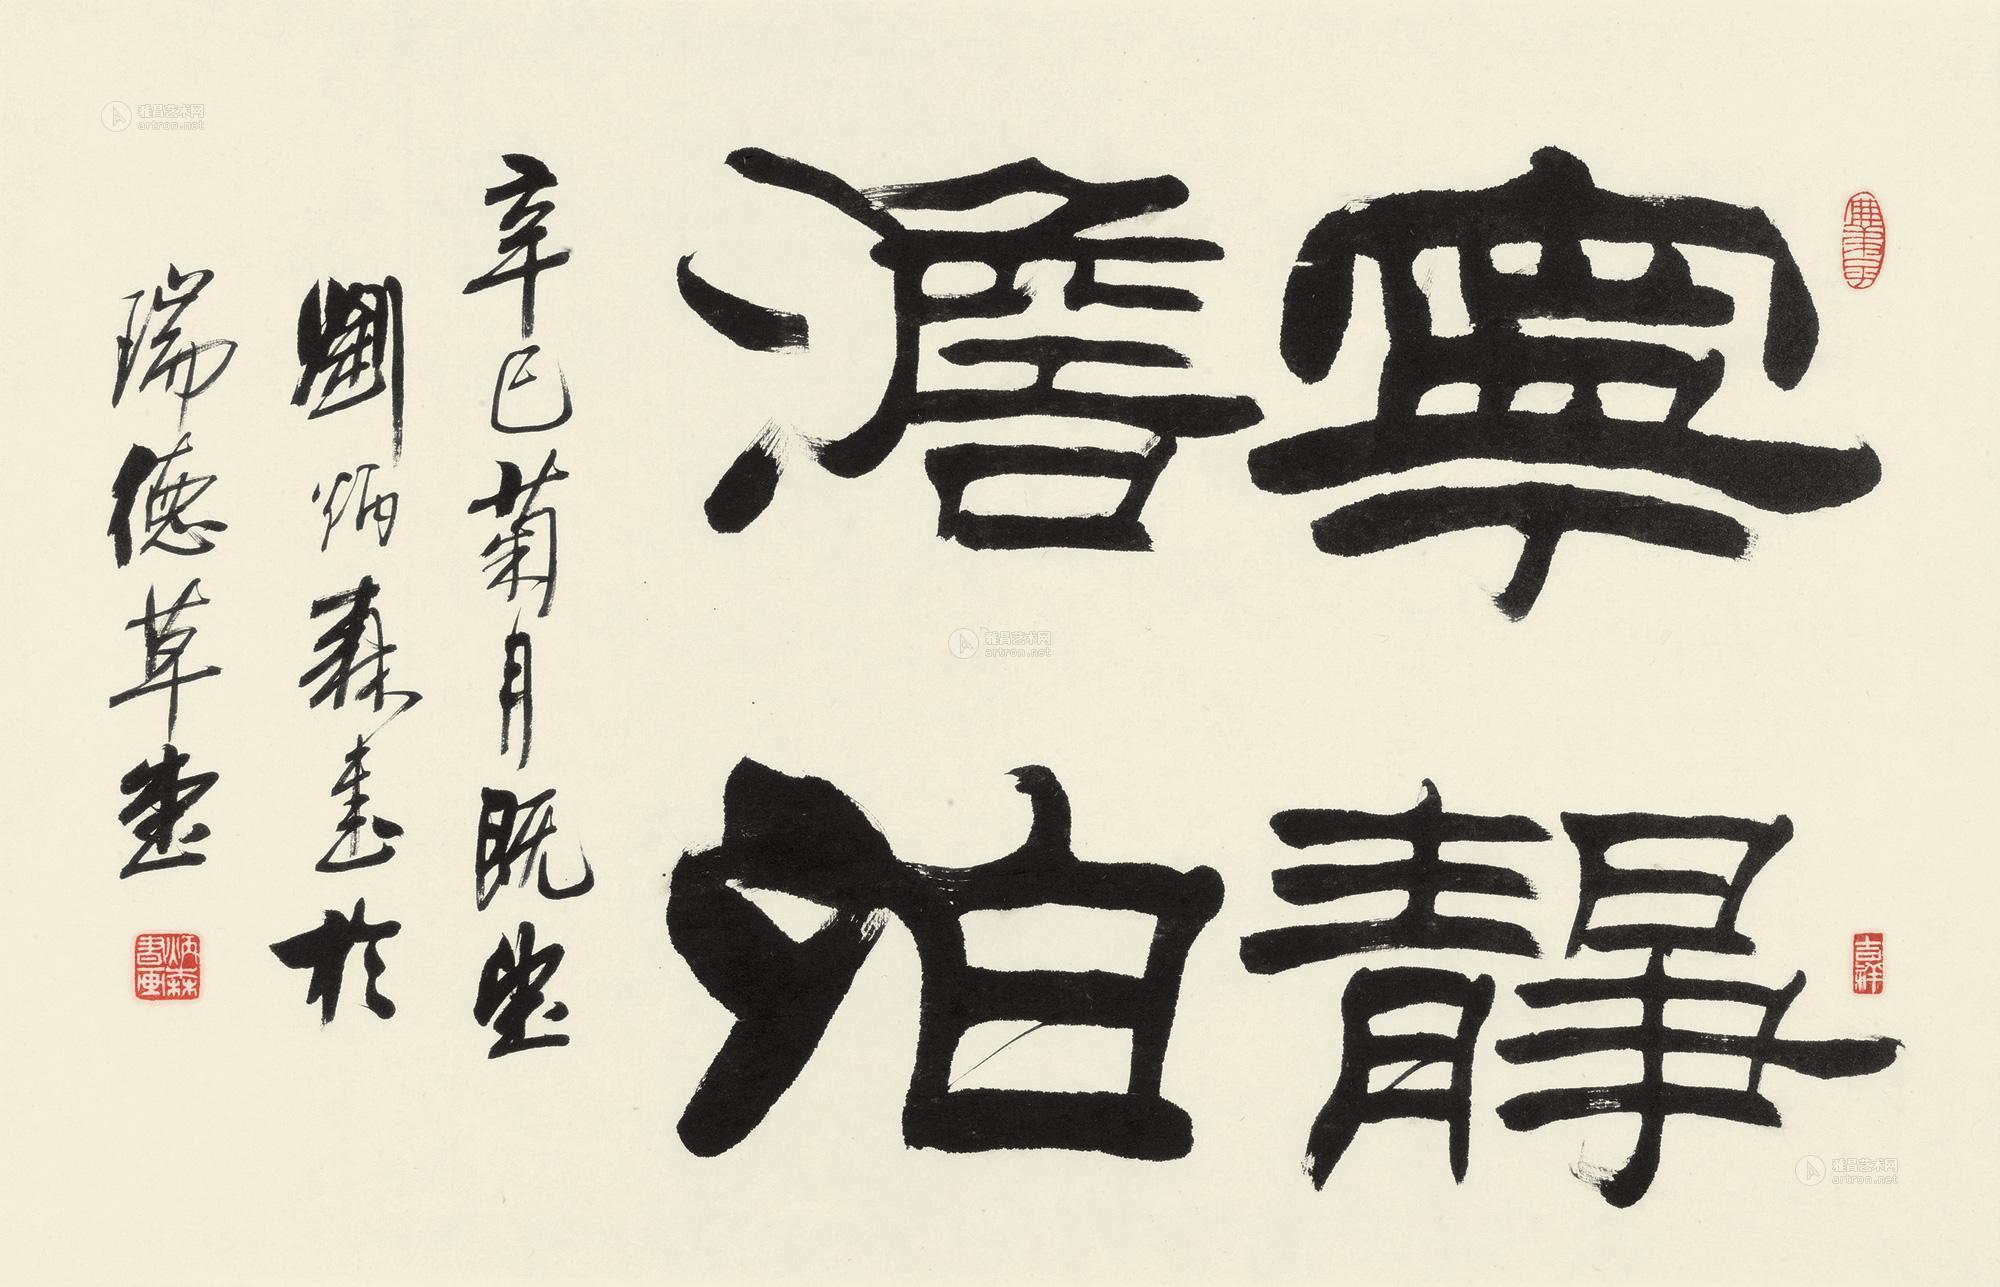 寧靜
澹泊
辛巳菊月既望
劉炳森書於
瑞德草堂
炳森書画
吉祥
雅昌艺术网
artron.net
雅昌艺术网
artron.net
雅昌艺术网
artron.net